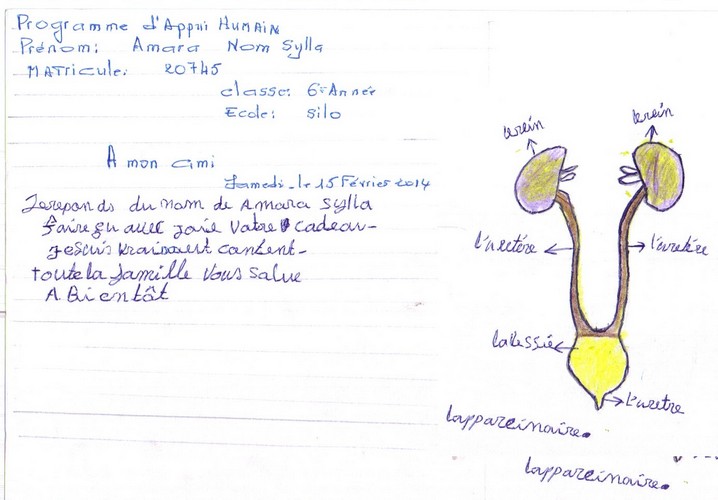 Programme d'Appui HUMAIN
Prénom: Amara Nom Sylla
MATricule: 20745
classe: 6e Année
Ecole: silo
A mon ami
Samedi-le 15 Février 2014
Jereponds du nom de Amara Sylla
J'aireçu avec joie Votre cadeau-
Jesuis vraiment content-
toutela famille Vous Salue
A Bientôt
lerein
lerein
l'uretère
l'uretère
laVessie
l'uretre
lappareinaire.
lappareinaire.